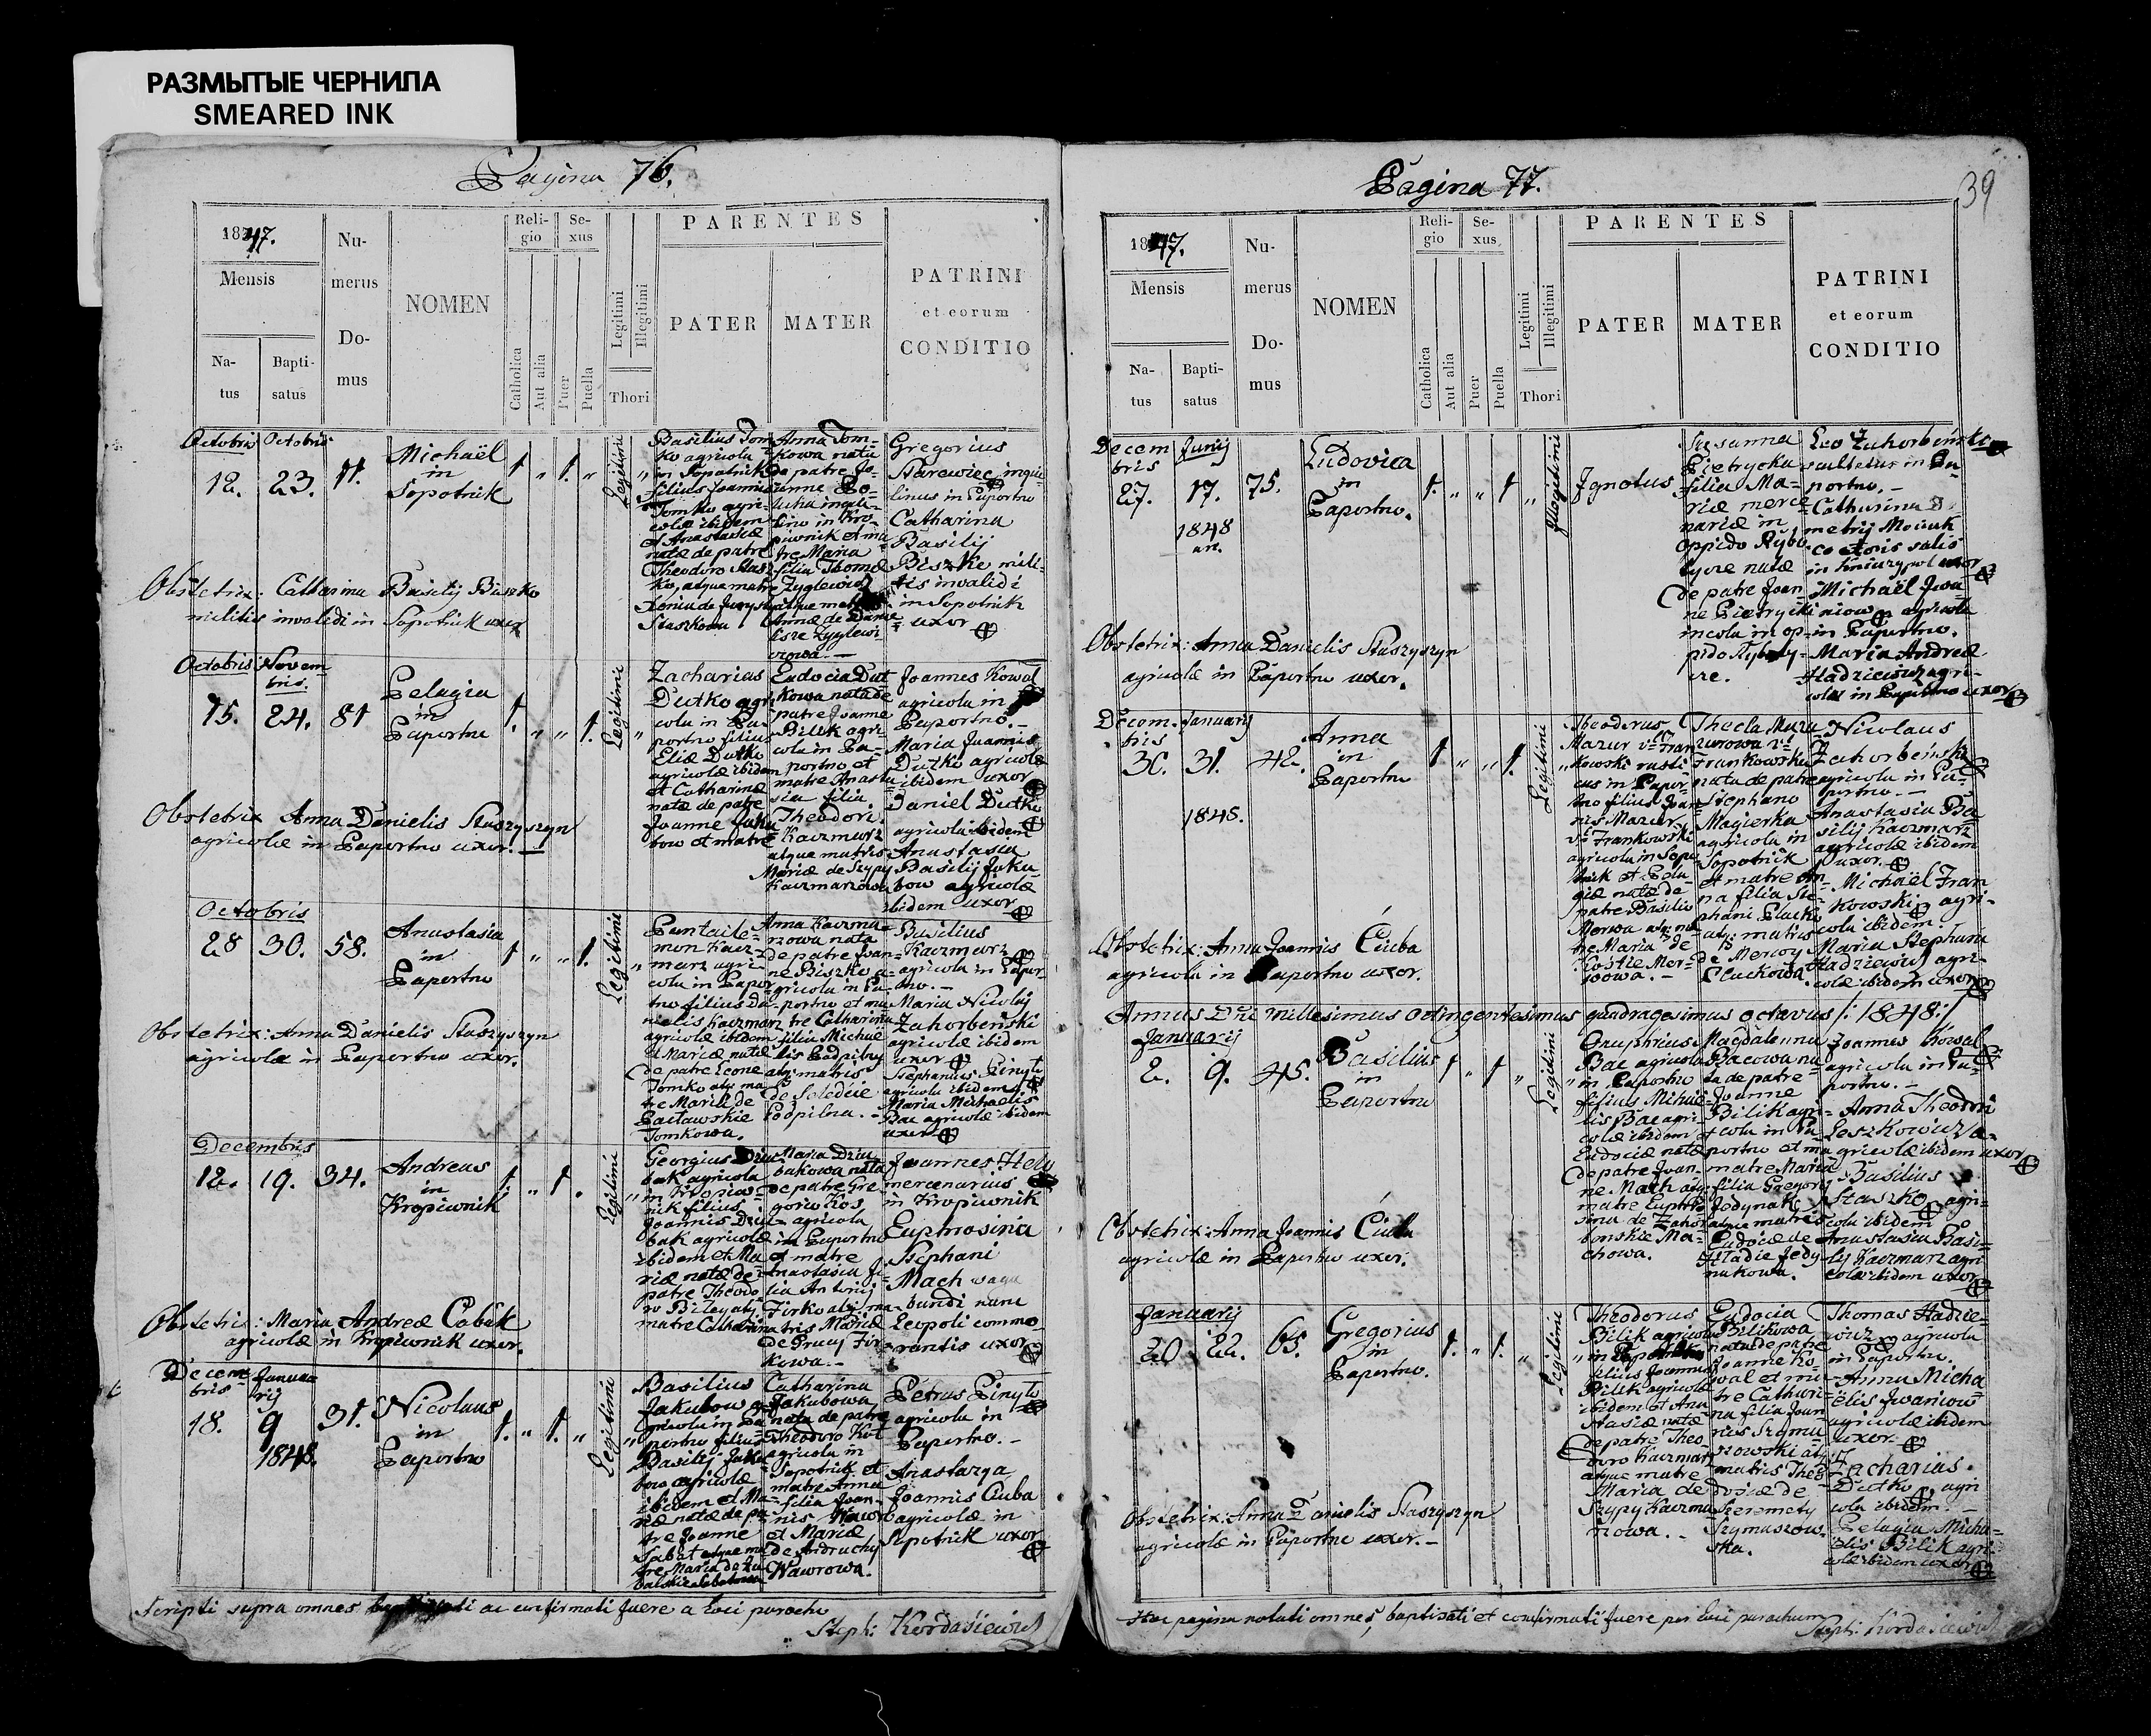 РАЗМЫТЫЕ ЧЕРНИЛА
SMEARED INK
Pagina 76.
1847.
Mensis
Na-
tus
Bapti-
satus
Nu-
merus
Do-
mus
NOMEN
Reli-
gio
Catholica
Aut alia
Se-
xus
Puer
Puella
Legitimi
Illegitimi
Thori
PARENTES
PATER
MATER
PATRINI
et eorum
CONDITIO
Octobris Octobris
12. 23. 11.
Michaël
in
Sopotnik
Legitimi
Basilius Tom
ko agricola
in Sopotnik
filius Joannis
Tomko agri-
colæ ibidem
et Anastasiæ
natæ de patre
Theodoro Stasz
ko, atque matre
Staszkowa
Anna Tom-
kowa nata
de patre Jo-
anne
piwnik et ma
tre Maria
filia Thomæ
Gregorius
Starewiec inqui-
linus in Paportno
Catharina
Basilij
Biszko mili-
tis invalidi
in Sopotnik
uxor
Obstetrix: Catharina Basilij Biszko
militis invalidi in Sopotnik uxor
Octobris Novem
bris.
15. 24. 81
Pelagia
in
Paportno
Legitimi
Zacharias
Dutko agri
cola in Pa-
portno filius
Eliæ Dutko
agricolæ ibidem
et Catharinæ
natæ de patre
Joanne Jaku
bow et matre
Eudocia Dut
kowa nata de
patre Joanne
Bilik agri-
cola in Pa-
portno et
matre Anasta
sia filia
Theodori
Kaczmarz
atque matris
Mariæ de Szypy
Kaczmarzowa
Joannes Kowal
agricola in
Paportno. -
Maria Joannis
Dutko agricolæ
ibidem uxor
Daniel Dutko
agricola ibidem
Anastasia
Basilij Jaku-
bow agricolæ
ibidem uxor
Obstetrix Anna Danielis Staszyszyn
agricolæ in Paportno uxor.
Octobris
28 30. 58.
Anastasia
in
Paportno
Legitimi
Pantaile-
mon Kacz-
marz agri-
cola in Papor
tno filius Da-
nielis Kaczmarz
agricolæ ibidem
et Mariæ natæ
de patre Leone
Tomko atq ma
tre Maria de
Pacławskie
Tomkowa.
Anna Kaczma-
rzowa nata
de patre Joan-
ne Biszko a-
gricola in Pa-
portno et ma
tre Catharina
filia Michaë
lis Podpilny
atq matris
Podpilna.
Basilius
Kaczmarz
agricola in Papor-
tno. -
Maria Nicolaj
Zahorbeński
agricolæ ibidem
uxor
Stephanus Pinylo
agricola ibidem
Maria Michaelis
Bac agricolæ ibidem
uxor
Obstetrix: Anna Danielis Staszyszyn
agricolæ in Paportno uxor.
Decembris
12. 19. 34.
Andreas
in
Kropiwnik
Legitimi
Georgius Dziu
bak agricola
in Kropiw-
nik filius
Joannis Dziu-
bak agricolæ
ibidem et Ma
riæ natæ de
patre Theodo-
ro
matre Catharina
Maria Dziu
bakowa nata
de patre Gre
gorio Kos
agricola
in Paportno
et matre
Anastasia fi-
lia Antonij
Firko atq ma
tris Mariæ
de Fir
kowa. -
Joannes Hely
mercenarius
in Kropiwnik
Euphrosina
Stephani
Mach vaga
bundi nunc
Leopoli commo
rantis uxor
Obstetrix: Maria Andreæ Cabik
agricolæ in Kropiwnik uxor.
Decem Janua
bris rij
18. 9 31.
1848.
Nicolaus
in
Paportno
Legitimi
Basilius
Jakubow a
gricola in Pa
portno filius
Basilij Jaku
bow agricolæ
ibidem et Ma-
riæ natæ de pa
tre Joanne
Sabat atque ma
tre Maria de
Catharina
Jakubowa
nata de patre
Theodoro Kot
agricola in
Sopotnik et
matre Anna
filia Joan-
nis Wawro
et Mariæ
de Andruchy
Wawrowa.
Petrus Pinylo
agricola in
Paportno. -
Anastazya
Joannis Ciuba
agricolæ in
Sopotnik uxor
Scripti supra omnes ac confirmati fuere a loci parocho
Steph: Kordasiewicz
39
Pagina 77.
1847.
Mensis
Na-
tus
Bapti-
satus
Nu-
merus
Do-
mus
NOMEN
Reli-
gio
Catholica
Aut alia
Se-
xus
Puer
Puella
Legitimi
Illegitimi
Thori
PARENTES
PATER
MATER
PATRINI
et eorum
CONDITIO
Decem Junij
bris
27. 17. 75.
1848
Ludovica
in
Paportno.
Illegitimi
Ignotus
Susanna
Pietrycka
filia Ma-
riæ merce
nariæ in
oppido Rybo
tycze natæ
de patre Joan
ne Pietrycki
incola in op-
pido Ryboty-
cze.
Leo Zahorbeński
scultetus in Pa
portno. -
Catharina
metrij
coctoris salis
in uxor
Michaël Jwa
niow agricola
in Paportno.
Maria Andreæ
Hadziewicz agri-
colæ in Paportno uxor
Obstetrix: Anna Danielis Staszyszyn
agricolæ in Paportno uxor.
Decem- Januarij
bris
30. 31. 42.
1848.
Anna
in
Paportno
Legitimi
Theodorus
Mazur vel Fran
kowski rusti
cus in Papor
tno filius Joan
nis Mazur
vel Frankowski
agricola in Sopo
tnik et Pela-
giæ natæ de
patre Basilio
Merwa atq ma
tre Maria de
Kostie Mer-
wowa. -
Thecla Mazu
rowa vel
Frankowska
nata de patre
Stephano
Magierka
agricola in
Sopotnik
et matre An-
na filia Ste-
phani Pluch
atq matris
de Merwy
Pluchowa.
Nicolaus
Zahorbeński
agricola in Pa-
portno. -
Anastasia Ba-
silij Kaczmarz
agricolæ ibidem
uxor.
Michaël Fran
kowski agri-
cola ibidem.
Maria Stephani
Hadziewicz agri-
colæ ibidem uxor
Obstetrix: Anna Joannis Ciuba
agricolæ in Paportno uxor.
Annus Dni Millesimus octingentesimus quadragesimus octavus /: 1848 :/
Januarij
2. 9. 45.
Basilius
in
Paportno
Legitimi
Onuphrius
Bac agricola
in Paportno
filius Michaë-
lis Bac agri-
colæ ibidem et
Eudociæ natæ
de patre Joan-
ne Mach atq
matre Euphro
sina de Zahor
bonskie Ma-
chowa.
Magdalenna
Bacowa na
ta de patre
Joanne
Bilik agri-
cola in Pa-
portno et ma
matre Maria
filia Gregorij
Jedynak
atque matris
Eudociæ de
Hładie Jedy
nakowa.
Joannes Kowal
agricola in Pa-
portno. -
Anna Theodori
Leszkowicz a-
gricolæ ibidem uxor
Basilius
Staszko agri-
cola ibidem
Anastasia Basi-
lij Kaczmarz agri
colæ ibidem uxor
Obstetrix: Anna Joannis Ciuba
agricolæ in Paportno uxor.
Januarij
20 22. 65.
Gregorius
in
Paportno.
Legitimi
Theodorus
Bilik agricola
in
filius Joannis
Bilik agricolæ
ibidem et Ana
stasiæ natæ
de patre Theo-
doro Kaczmarz
atque matre
Maria de
Szypy Kaczma
rzowa. -
Eudocia
Bilikowa
nata de patre
Joanne Ko-
wal et ma-
tre Cathari-
na filia Joan-
nis Szyma-
szowski atq
matris Theo-
dosiæ de
Szeremety
Szymaszow-
ska.
Thomas Hadzie-
wicz agricola
in Paportno.
Anna Micha
ëlis Jwaniow
agricolæ ibidem
uxor.
Zacharias
Dutko agri
cola ibidem. -
Pelagia Micha-
ëlis Bilik agri-
colæ ibidem uxor
Obstetrix: Anna Danielis Staszyszyn
agricolæ in Paportno uxor. -
Hac pagina notati omnes, baptisati et confirmati fuere per loci parochum
Steph: Kordasiewicz